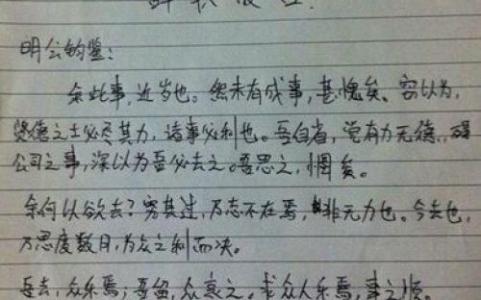 辞职报告
明公钧鉴：
余此事，近岁也。然未有成事，甚愧矣。窃以为，
贤德之士必尽其力，诸事必利也。吾自省，觉有力无德，碍
公司之事，深以为吾必去之。吾思之，惆矣。
余何以欲去？究其过，乃志不在焉，非无力也。今去也，
乃思度数月，为众之利而决。
吾去，众乐焉；吾留，众哀之。求众人乐焉，事之顺